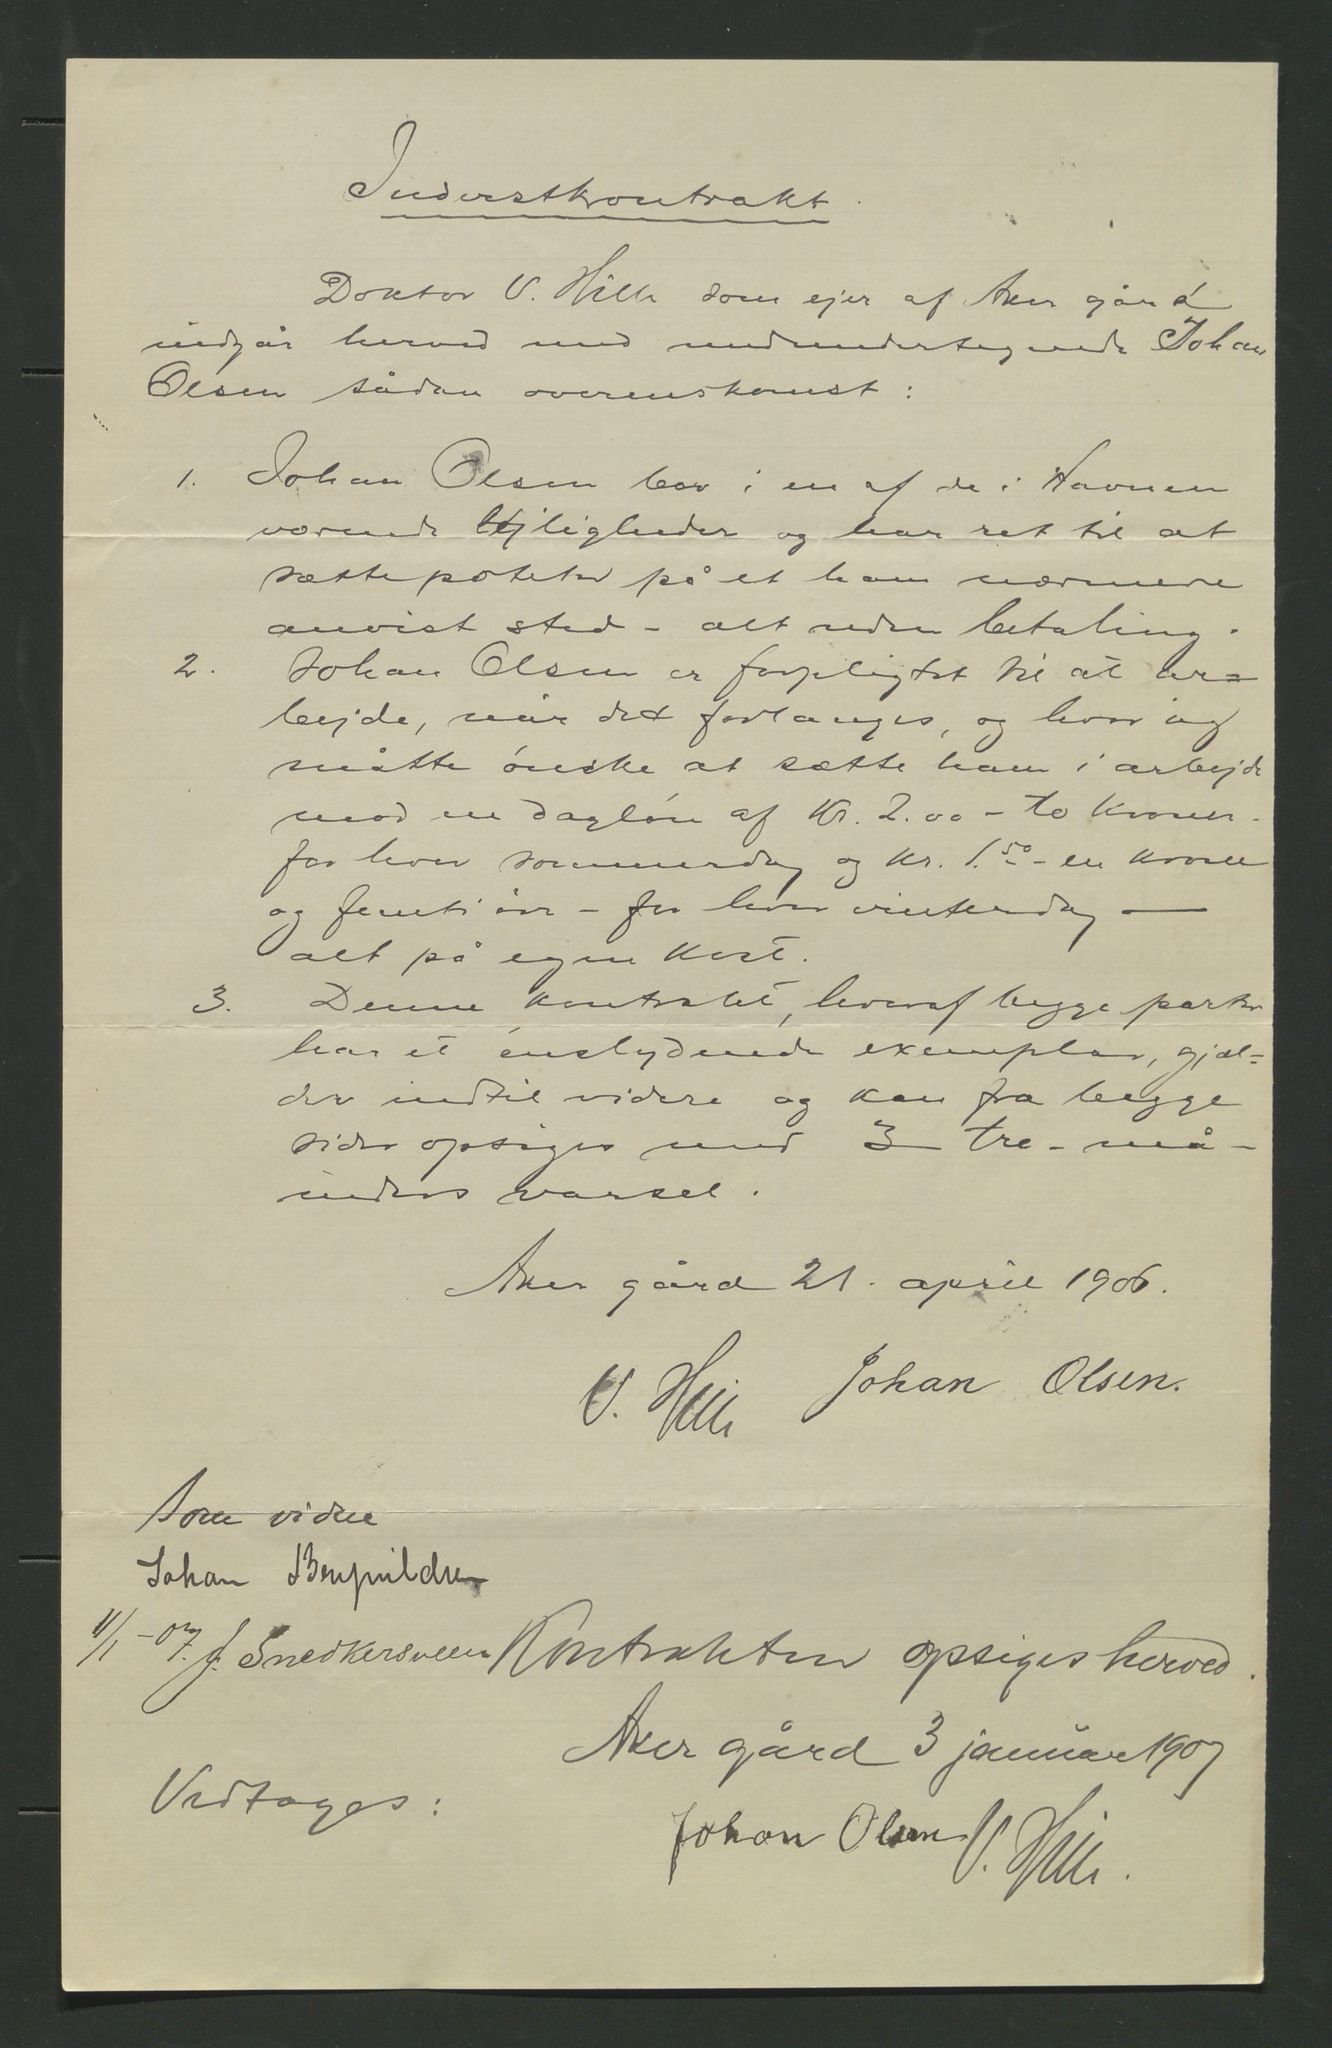 Inderstkontrakt.
Doktor V. Hille som ejer af Aker gård
indgår herved med medundertegnede Johan
Olsen sådan overenskomst:
1. Johan Olsen bor i en af de i Havnen
værende lejligheder og har ret til at
sætte poteter på et ham nærmere
anvist sted - alt uden betaling.
2. Johan Olsen er forpligtet til at ar=
bejde, når det forlanges, og hvor jeg
måtte ønske at sætte ham i arbejde
mod en dagløn af Kr. 2.00 - to kroner -
for hver sommerdag og Kr. 1.50 - en krone
og femti øre - for hver vinterdag —
alt på egen kost.
3. Denne kontrakt, hvoraf begge parter
har et énslydende exemplar, gjæl=
der indtil videre og kan fra begge
sider opsiges med 3 - tre - må-
neders varsel.
Aker gård 21. april 1906.
V. Hille Johan Olsen.
Som vidne
Johan
11/1 - 07. J. Snedkersveen Kontrakten opsiges herved.
Aker gård 3 januar 1907
Vedtages:
Johan Olsen V. Hille.